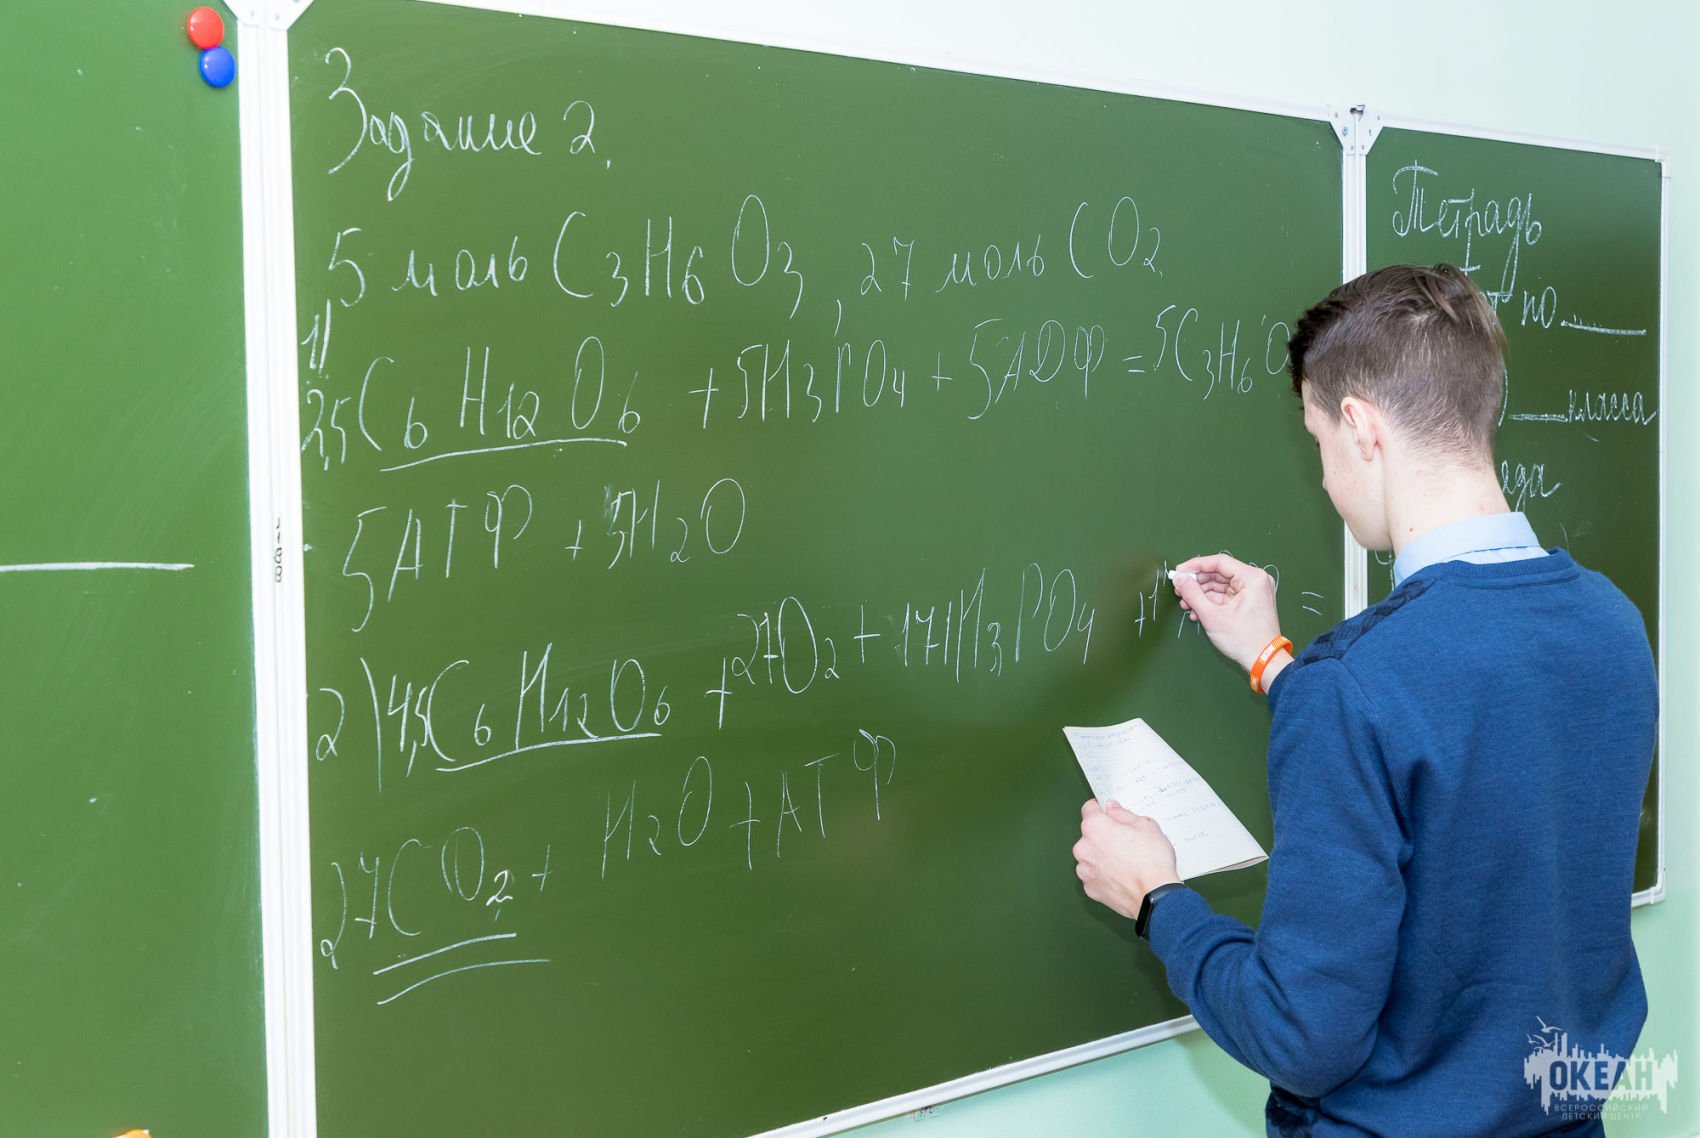 Задание 2.
5 моль C₃H₆O₃, 27 моль CO₂
1)
2,5C₆H₁₂O₆ + 5H₃PO₄ + 5АДФ = 5C₃H₆O
5АТФ + 5H₂O
2) 4,5C₆H₁₂O₆ + 27O₂ + 171H₃PO₄ + =
27CO₂ + H₂O + АТФ
Тетрадь
по
класса
ОКЕАН
ВСЕРОССИЙСКИЙ
ДЕТСКИЙ ЦЕНТР